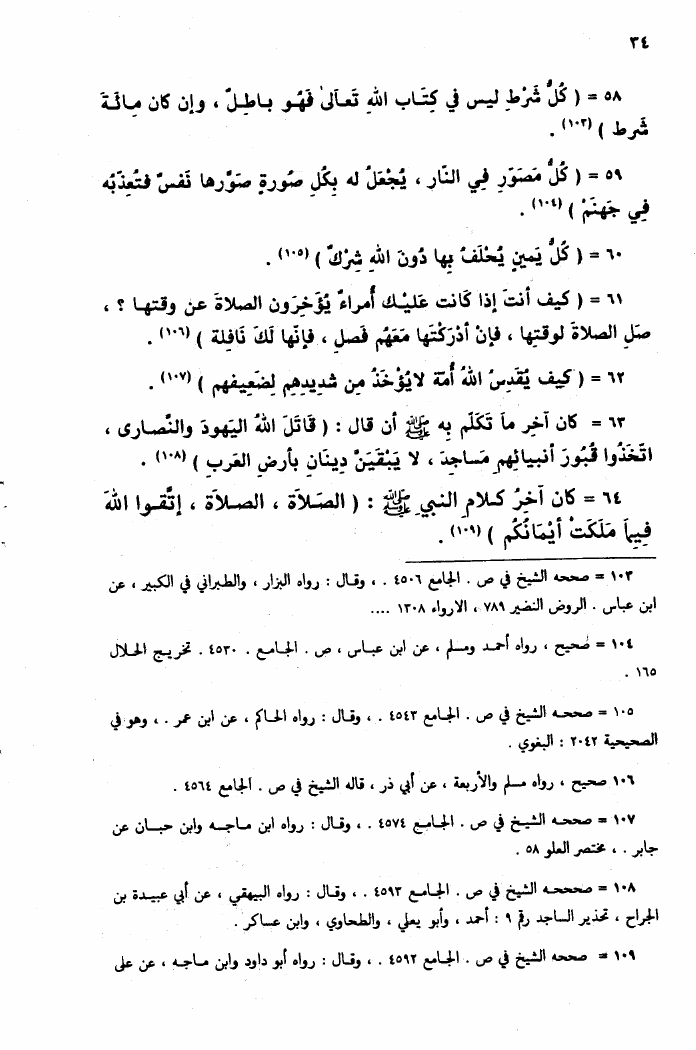 ٣٤
٥٨ = ( كُلُّ شَرْطٍ ليس في كِتَاب اللهِ تَعَالىٰ فَهُو باطِلٌ ، وإن كان مِائَةَ
شَرط ) (١٠٣) .
٥٩ = ( كُلُّ مَصَوِّرٍ فِي النَّار ، يُجْعَلُ له بِكُلِ صُورةٍ صَوَّرها نَفسٌ فتُعذِّبُه
فِي جَهنَمْ ) (١٠٤) .
٦٠ = ( كُلُّ يَمينٍ يُحْلَفُ بِها دُونَ اللهِ شِرْكٌ ) (١٠٥) .
٦١ = ( كيف أنتَ إذا كَانت عَليْك أُمراءُ يُؤَخِرَون الصلاةَ عن وقتها ؟ ،
صَلِ الصلاةَ لوقتها ، فإنْ أدْرَكْتَها مَعَهُم فَصلِ ، فإنّها لَكَ نَافِلة ) (١٠٦) .
٦٢ = ( كيف يُقَدِسُ اللهُ أُمَة لايُؤْخَذُ مِن شديدِهِم لِضَعيفهِم ) (١٠٧) .
٦٣ = كان آخِر ماَ تَكَلَّم بِه ﷺ أن قال : ( قَاتَلَ اللهُ اليَهودَ والنَّصارى ،
اتَخَذُوا قُبُورَ أنبيائِهِم مَساجِدَ ، لا يَبْقَيَنَّ دِينَانِ بأرضِ العَرب ) (١٠٨) .
٦٤ = كان آخِرُ كلامِ النبي ﷺ : ( الصَلاَة ، الصلاَة ، إتَّقوا اللهَ
فِيماَ مَلَكَتْ أيْمَانُكُم ) (١٠٩) .
١٠٣ = صححه الشيخ في ص . الجامع ٤٥٠٦ . ، وقال : رواه البزار ، والطبراني في الكبير ، عن
ابن عباس . الروض النضير ٧٨٩ ، الارواء ١٣٠٨ ....
١٠٤ = صحيح ، رواه أحمد ومسلم ، عن ابن عباس ، ص . الجامع . ٤٥٣٠ . تخريج الحلال
١٦٥ .
١٠٥ = صححه الشيخ في ص . الجامع ٤٥٤٣ . ، وقال : رواه الحاكم ، عن ابن عمر . ، وهو في
الصحيحة ٢٠٤٢ : البغوي .
١٠٦ صحيح ، رواه مسلم والأربعة ، عن أبي ذر ، قاله الشيخ في ص . الجامع ٤٥٦٤ .
١٠٧ = صححه الشيخ في ص . الجامع ٤٥٧٤ . ، وقال : رواه ابن ماجه وابن حبان عن
جابر . ، مختصر العلو ٥٨ .
١٠٨ = صححه الشيخ في ص . الجامع ٤٥٩٣ . ، وقال : رواه البيهقي ، عن أبي عبيدة بن
الجراح ، تحذير الساجد رقم ٩ : أحمد ، وأبو يعلي ، والطحاوي ، وابن عساكر .
١٠٩ = صححه الشيخ في ص . الجامع ٤٥٩٢ . ، وقال : رواه أبو داود وابن ماجه ، عن على